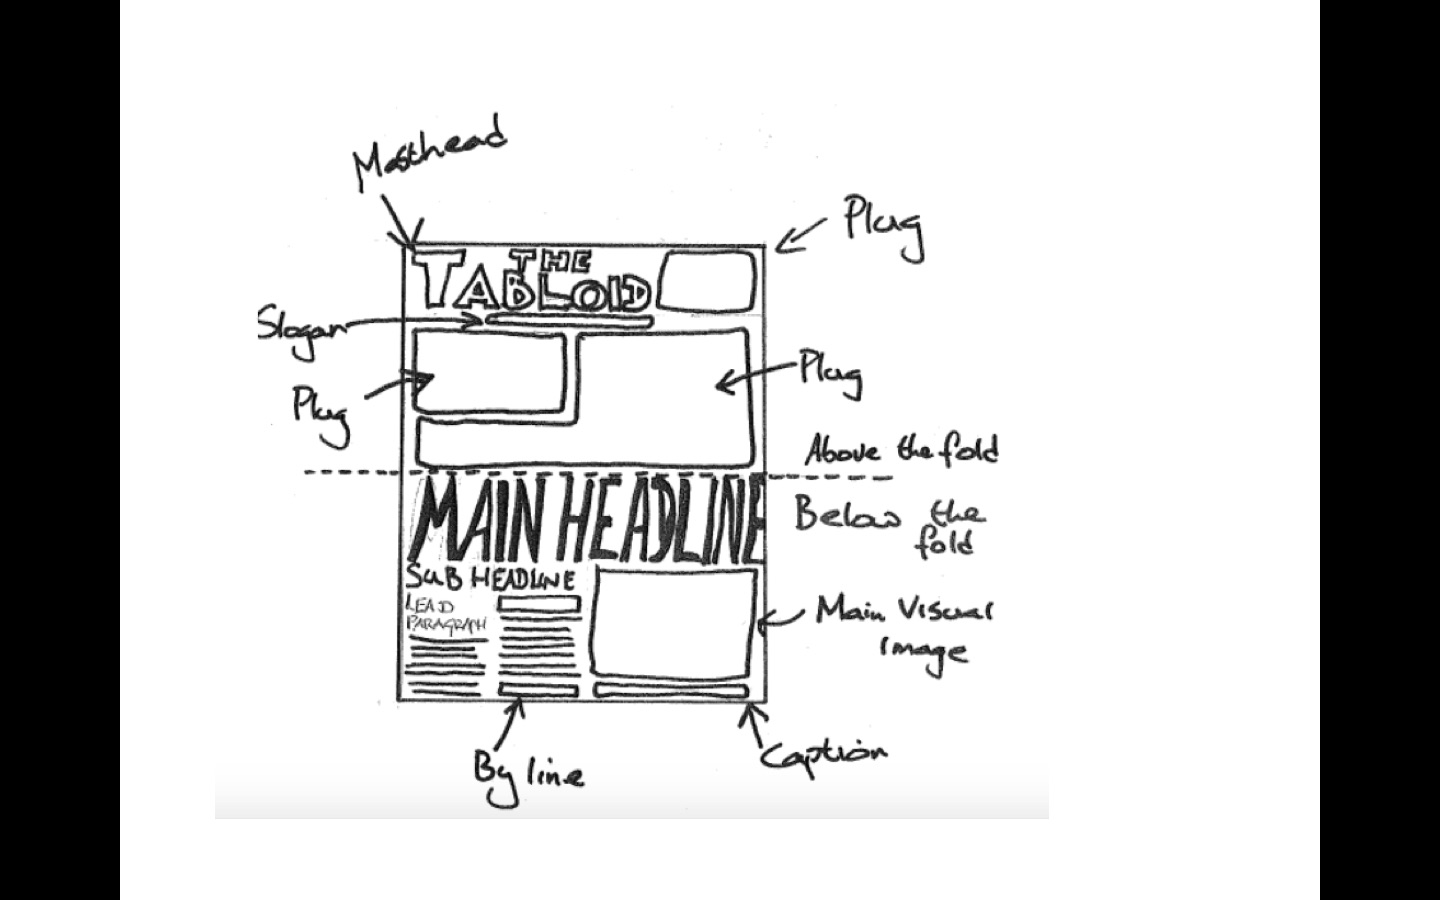 Masthead
Plug
THE
TABLOID
Slogan
Plug
Plug
Above the fold
MAIN HEADLINE
Below the
fold
SUB HEADLINE
LEAD
PARAGRAPH
Main Visual
Image
By line
Caption